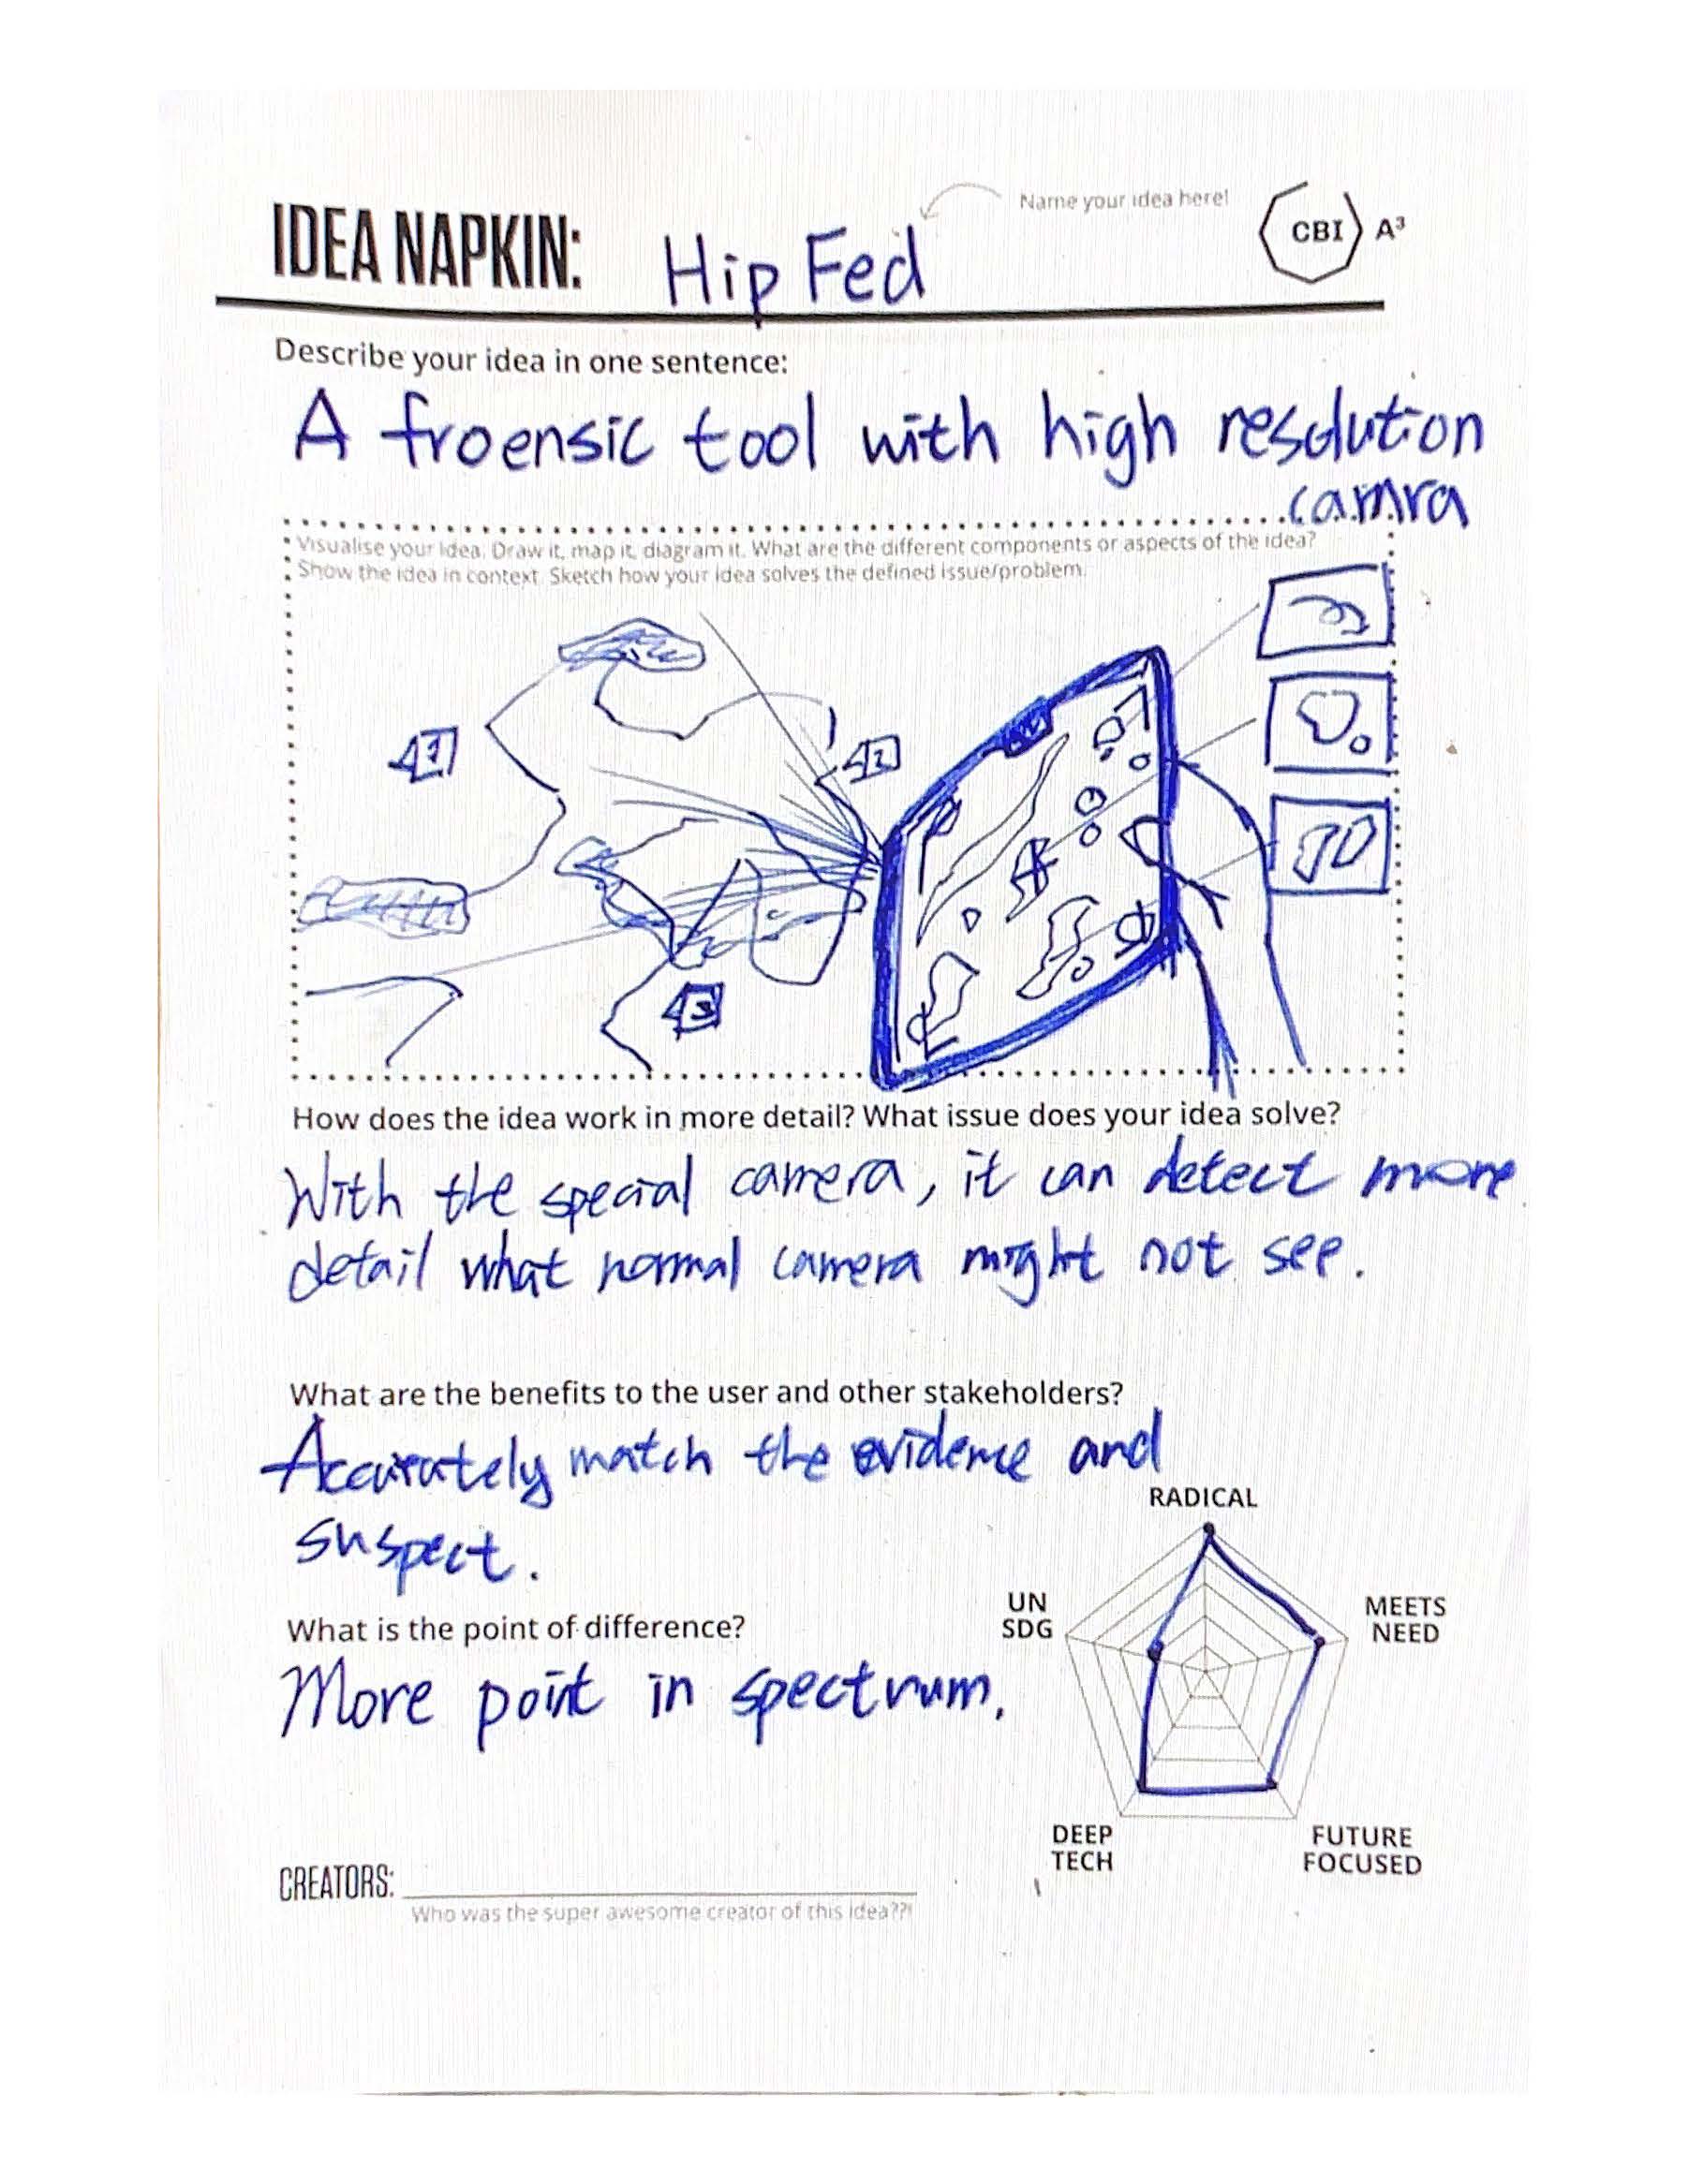 Name your idea here!
IDEA NAPKIN: Hip Fed
CBI A³
Describe your idea in one sentence:
A froensic tool with high resolution
camra
Visualise your idea. Draw it, map it, diagram it. What are the different components or aspects of the idea?
Show the idea in context. Sketch how your idea solves the defined issue/problem.
1
2
3
How does the idea work in more detail? What issue does your idea solve?
With the special camera, it can detect more
detail what normal camera might not see.
What are the benefits to the user and other stakeholders?
Accurately match the evidence and
suspect.
What is the point of difference?
More point in spectrum.
RADICAL
UN
SDG
MEETS
NEED
DEEP
TECH
FUTURE
FOCUSED
CREATORS:
Who was the super awesome creator of this idea??!